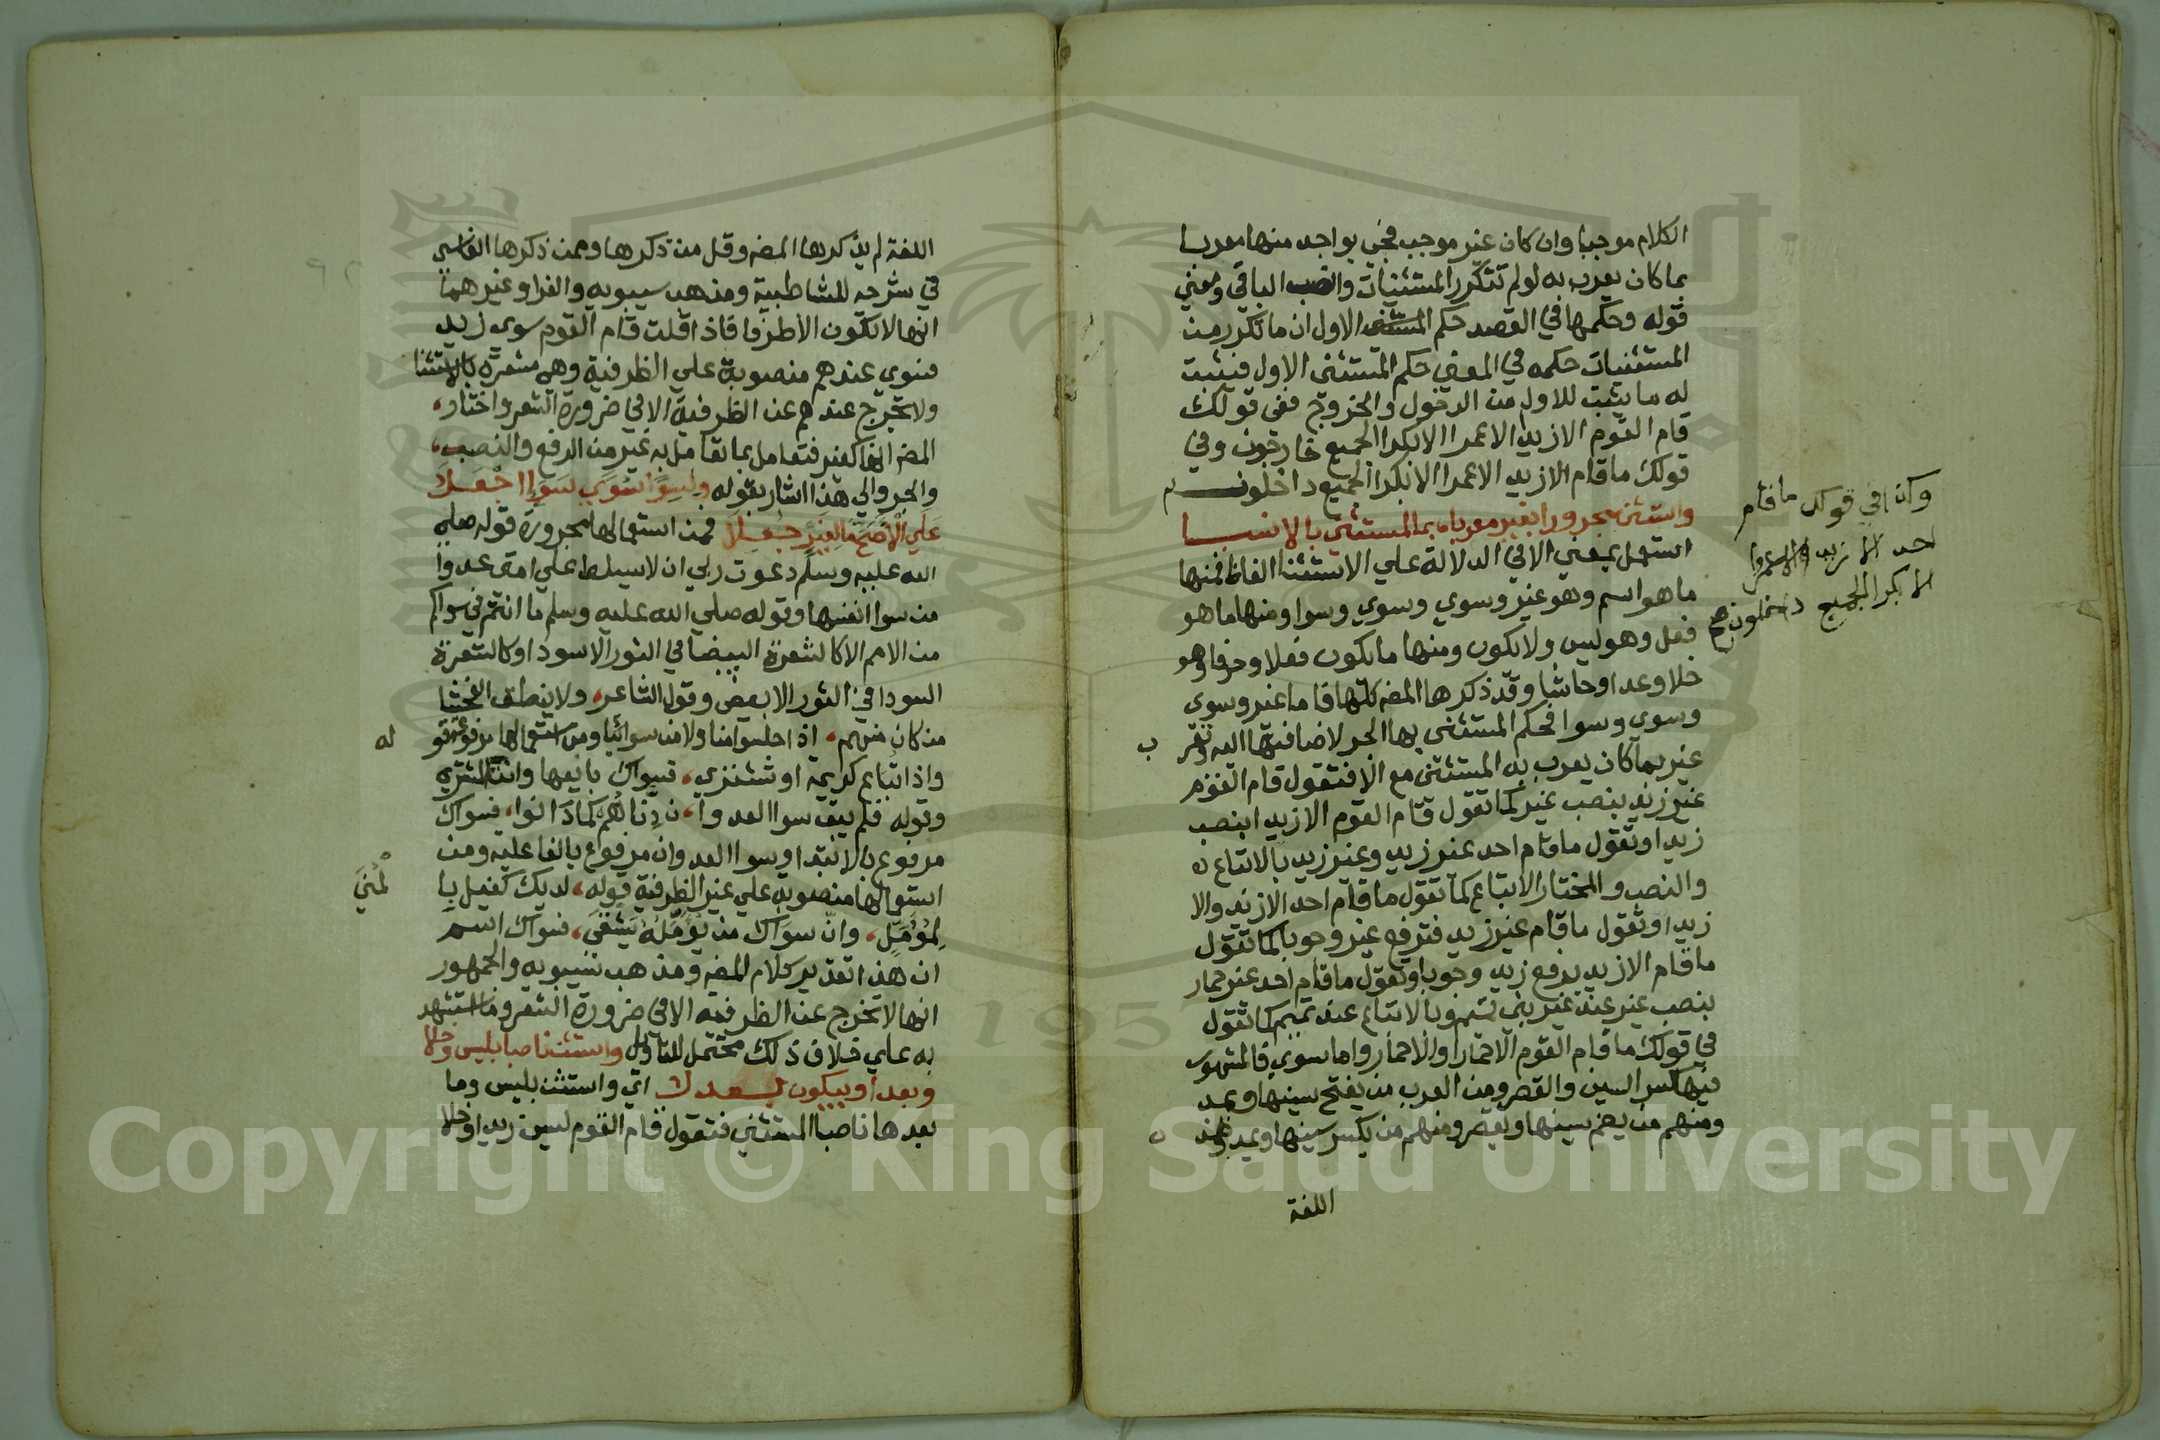 الكلام موجبا وان كان غير موجب فجئ بواحد منها معربا
بما كان يعرب به لو لم تتكرر المستثنيات وانصب الباقي ومعني
قوله وحكمها في القصد حكم المستثنى الاول ان ما تكرر من
المستثنيات حكمه في المعني حكم المستثنى الاول فيثبت
له ما يثبت للاول من الدخول والخروج ففي قولك
قام القوم الا زيدا الا عمرا الا بكرا الجميع خارجون وفي
قولك ما قام الا زيد الا عمرا الا بكرا الجميع داخلون
واستثن مجرورا بغير معربا بما لمستثنى بالا نسبا
استعمل بمعني الا في الدلالة علي الاستثنا الفاظ فمنها
ما هو اسم وهو غير وسوي وسوي وسوا ومنها ما هو
فعل وهو ليس ولا يكون ومنها ما يكون فعلا وحرفا وهو
خلا وعدا وحاشا وقد ذكرها المصنف كلها فاما غير وسوي
وسوي وسوا فحكم المستثنى بها الجر لاضافتها اليه وتعر
ب
غير بما كان يعرب به المستثنى مع الا فتقول قام القوم
غير زيد بنصب غير كما تقول قام القوم الا زيدا بنصب
زيدا وتقول ما قام احد غير زيد وغير زيد بالاتباع
والنصب والمختار الاتباع كما تقول ما قام احد الا زيد والا
زيدا وتقول ما قام غير زيد فترفع غير وجوبا كما تقول
ما قام الا زيد برفع زيد وجوبا وتقول ما قام احد غير حمار
بنصب غير عند غير بني تميم وبالاتباع عند تميم كما تقول
في قولك ما قام القوم الا حمارا والا حمار واما سوي فالمشهور
فيها كسر السين والقصر ومن العرب من يفتح سينها ويمد
ومنهم من يضم سينها ويقصر ومنهم من يكسر سينها ويمد وهذه
اللغة
وكذا في قولك ما قام
احد الا زيد والا عمروا
الا بكرا الجميع داخلون صح
اللغة لم يذكرها المصنف وقل من ذكرها وممن ذكرها الفاسي
في شرحه للشاطبية ومذهب سيبويه والفرا وغيرهما
انها لا تكون الا ظرفا فاذا قلت قام القوم سوي زيد
فسوي عندهم منصوبة علي الظرفية وهي مشعرة بالاستثنا
ولا تخرج عندهم عن الظرفية الا في ضرورة الشعر واختار
المصنف انها كغير فتعامل بما تعامل به غير من الرفع والنصب
والجر والي هذا اشار بقوله ولسوا سوي سوا اجعلا
علي الاصح ما لغير جعلا فمن استعمالها مجرورة قوله صلي
الله عليه وسلم دعوت ربي ان لا يسلط علي امتي عدوا
من سوا انفسها وقوله صلي الله عليه وسلم ما انتم في سواكم
من الامم الا كالشعرة البيضا في الثور الاسود او كالشعرة
السودا في الثور الابيض وقول الشاعر ولا ينطق الفحشا
من كان منهم اذا جلسوا منا ولا من سوائنا ومن استعمالها مرفوعة قو
له
واذا تباع كريمة او تشتري فسواك بائعها وانت المشتري
وقوله فلم يبق سوا العدوا ن دناهم كما دانوا فسواك
مرفوع بالابتدا وسوا العدوان مرفوع بالفاعلية ومن
استعمالها منصوبة علي غير الظرفية قوله لديك كفيل با
لمني
لمؤمل وان سواك من يؤمله يشقى فسواك اسم
ان هذا تقدير كلام المصنف ومذهب سيبويه والجمهور
انها لا تخرج عن الظرفية الا في ضرورة الشعر وما استشهد
به علي خلاف ذلك محتمل للتاويل واستثن ناصبا بليس وخلا
وبعدا وبيكون بعد لا اي واستثن بليس وما
بعدها ناصبا المستثنى فتقول قام القوم ليس زيدا وخلا
Copyright © King Saud University
195